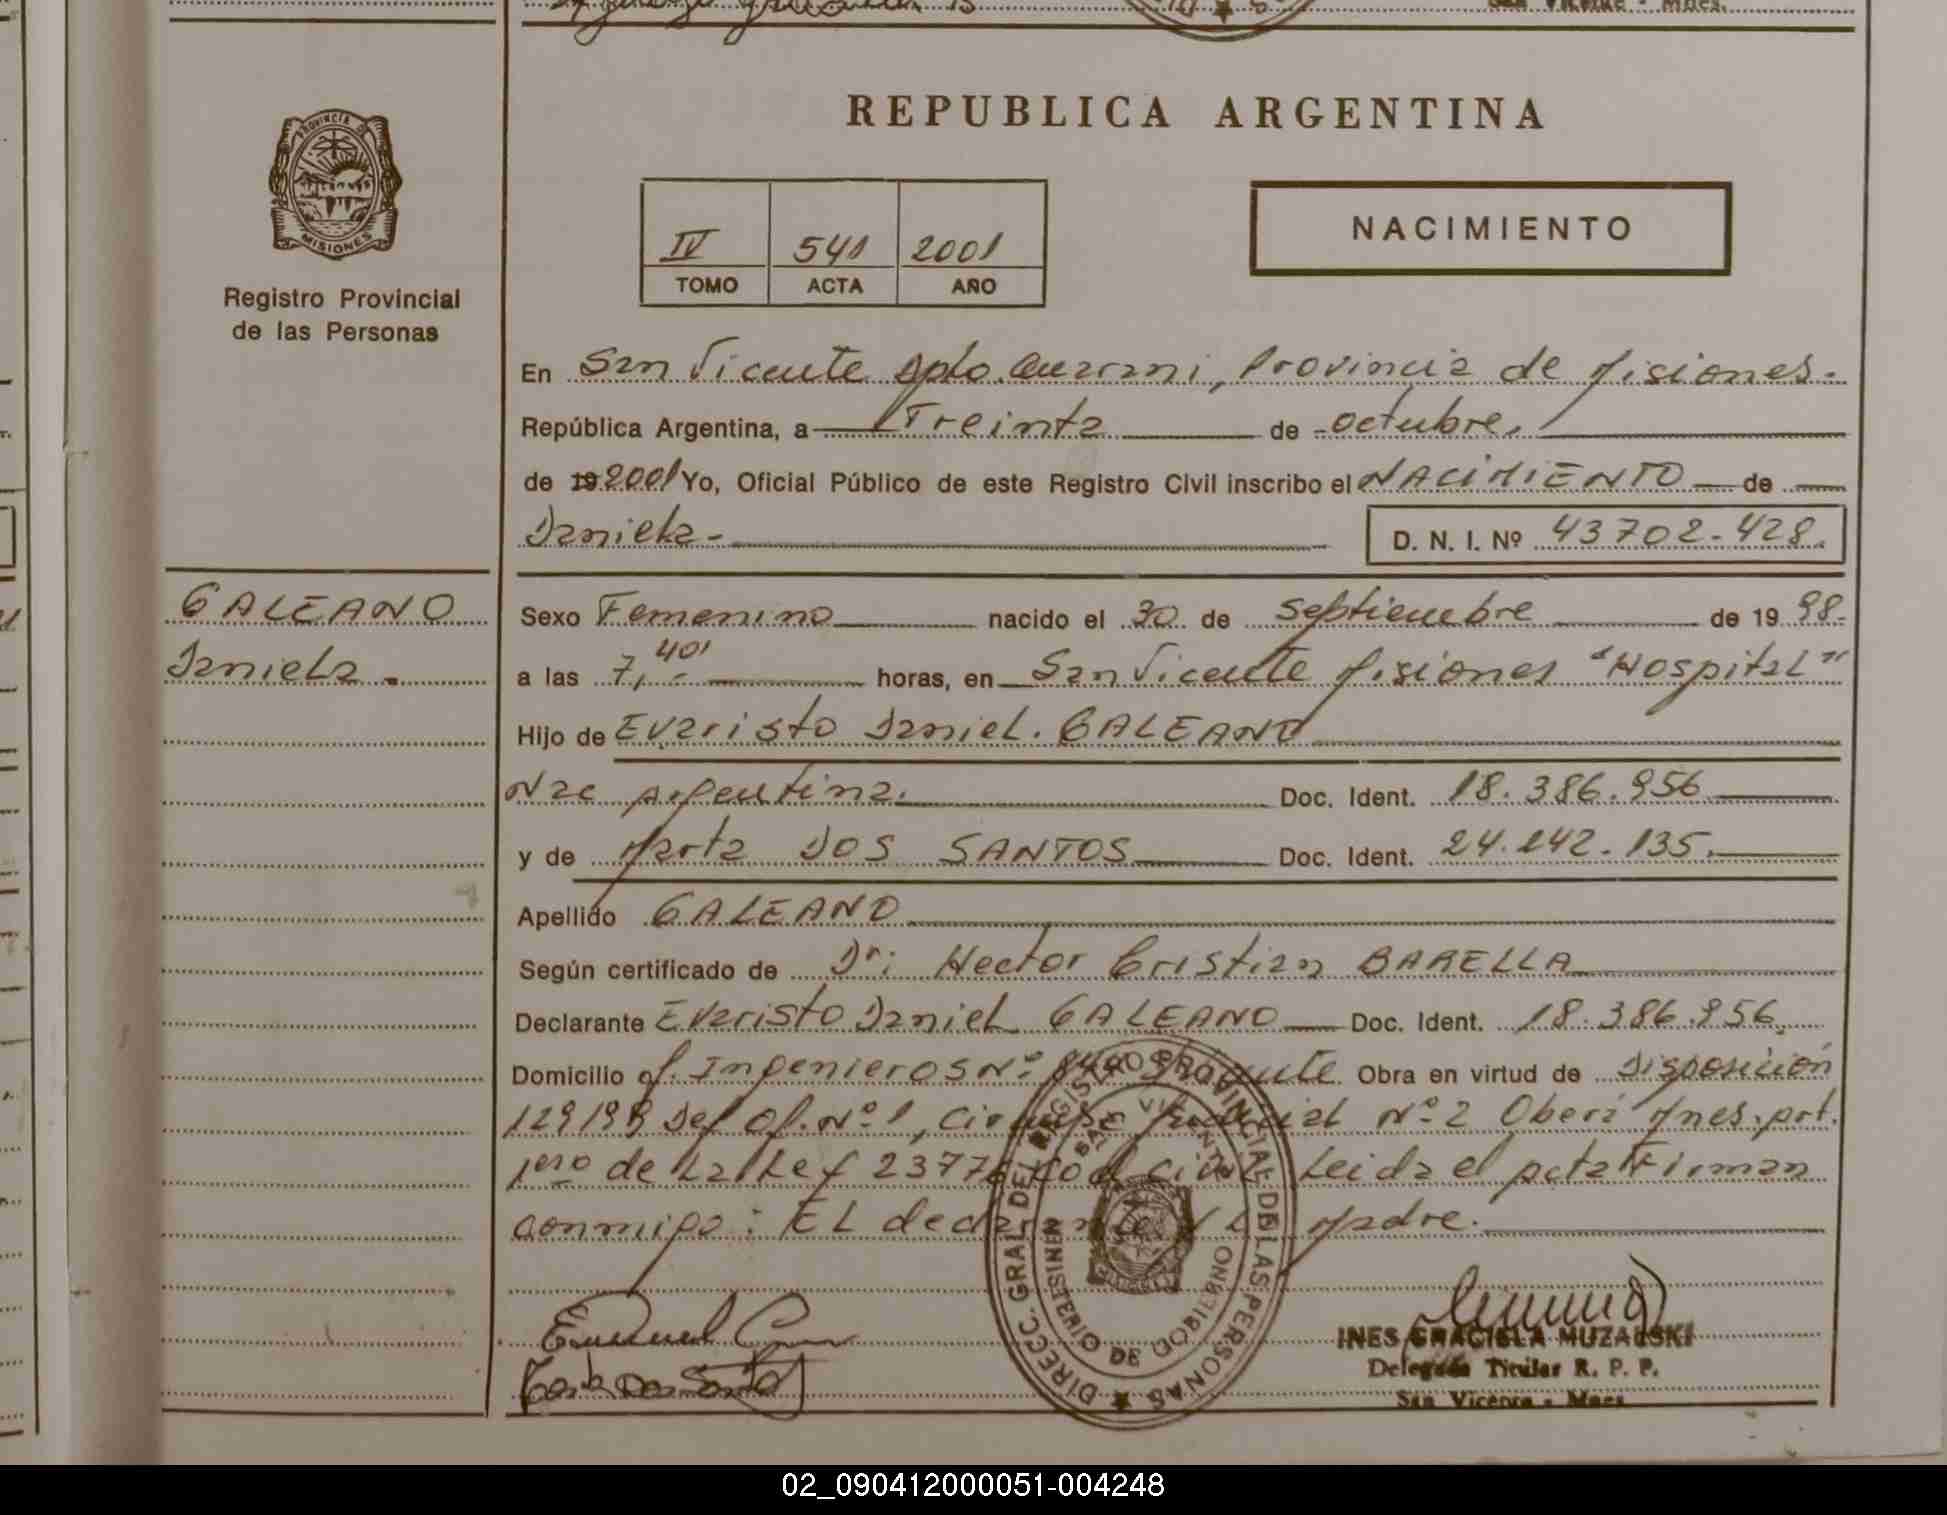 San Vicente - Mnes.
PROVINCIA DE
MISIONES
Registro Provincial
de las Personas
REPUBLICA ARGENTINA
IV 541 2001
TOMO ACTA AÑO
NACIMIENTO
En San Vicente Dpto. Guarani, Provincia de Misiones.
República Argentina, a Treinta de octubre.
de 19 2001 Yo, Oficial Público de este Registro Civil inscribo el NACIMIENTO de
Daniela- D. N. I. Nº 43702-428.
GALEANO
Daniela.
Sexo Femenino nacido el 30 de Septiembre de 1998-
a las 7,40' horas, en San Vicente Misiones "Hospital"
Hijo de Evaristo Daniel. GALEANO
Nac Argentina. Doc. Ident. 18.386.956
y de Marta DOS SANTOS Doc. Ident. 24.142.135.
Apellido GALEANO
Según certificado de Dr: Hector Cristian BARELLA
Declarante Evaristo Daniel GALEANO Doc. Ident. 18.386.956
Domicilio J. Ingenieros Nº Vicente Obra en virtud de Disposición
129/99 Del Of. Nº 1, Judicial Nº 2 Obera Mnes. Art.
1ero de La Ley 23776 Leida el Acta Firman
conmigo: EL declarante y La Madre.
Dos Santos
DIRECC. GRAL. DEL REGISTRO PROVINCIAL DE LAS PERSONAS
SAN VICENTE
DE GOBIERNO
INES GRACIELA MUZALSKI
Delegada Titular R. P. P.
San Vicente - Mnes
02_090412000051-004248